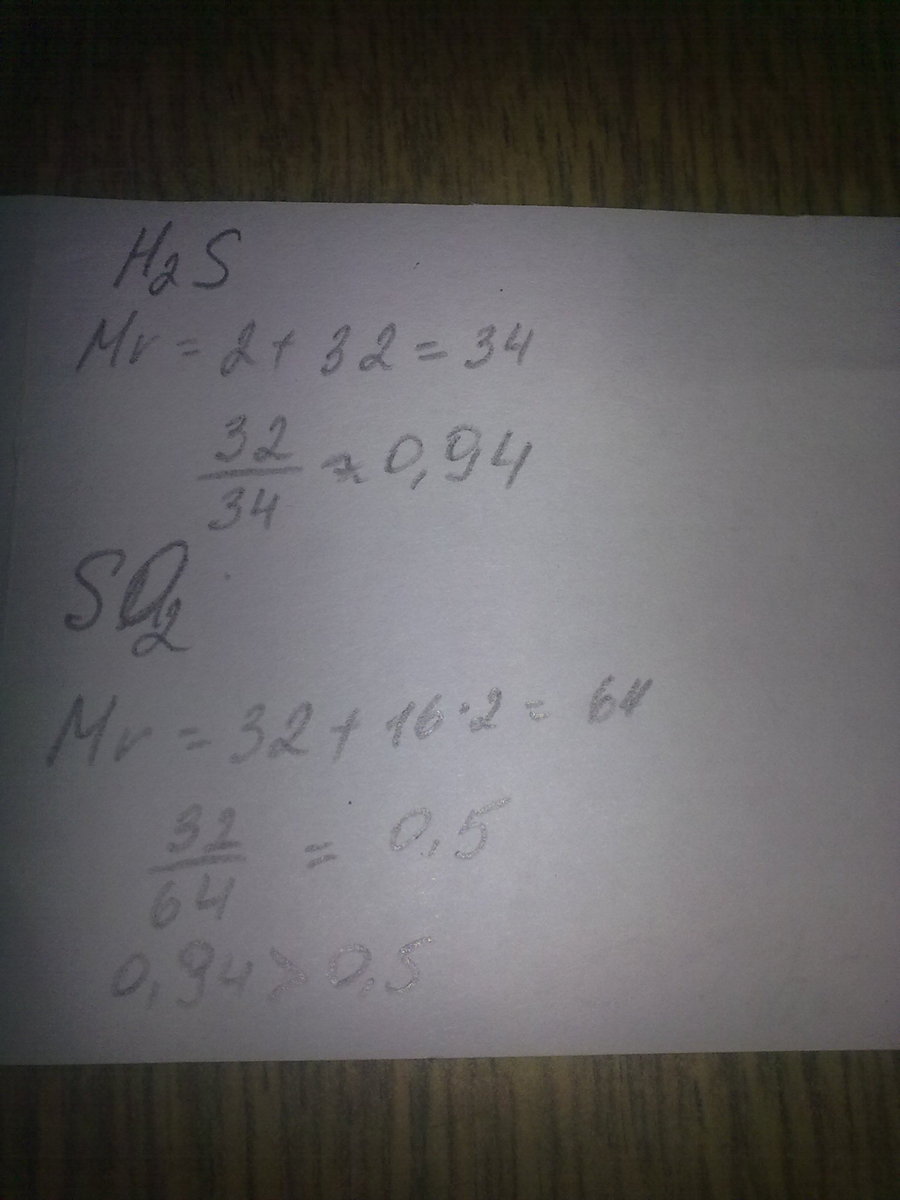 H₂S
Mr = 2 + 32 = 34
32/34 ≈ 0,94
SO₂
Mr = 32 + 16·2 = 64
32/64 = 0,5
0,94 > 0,5